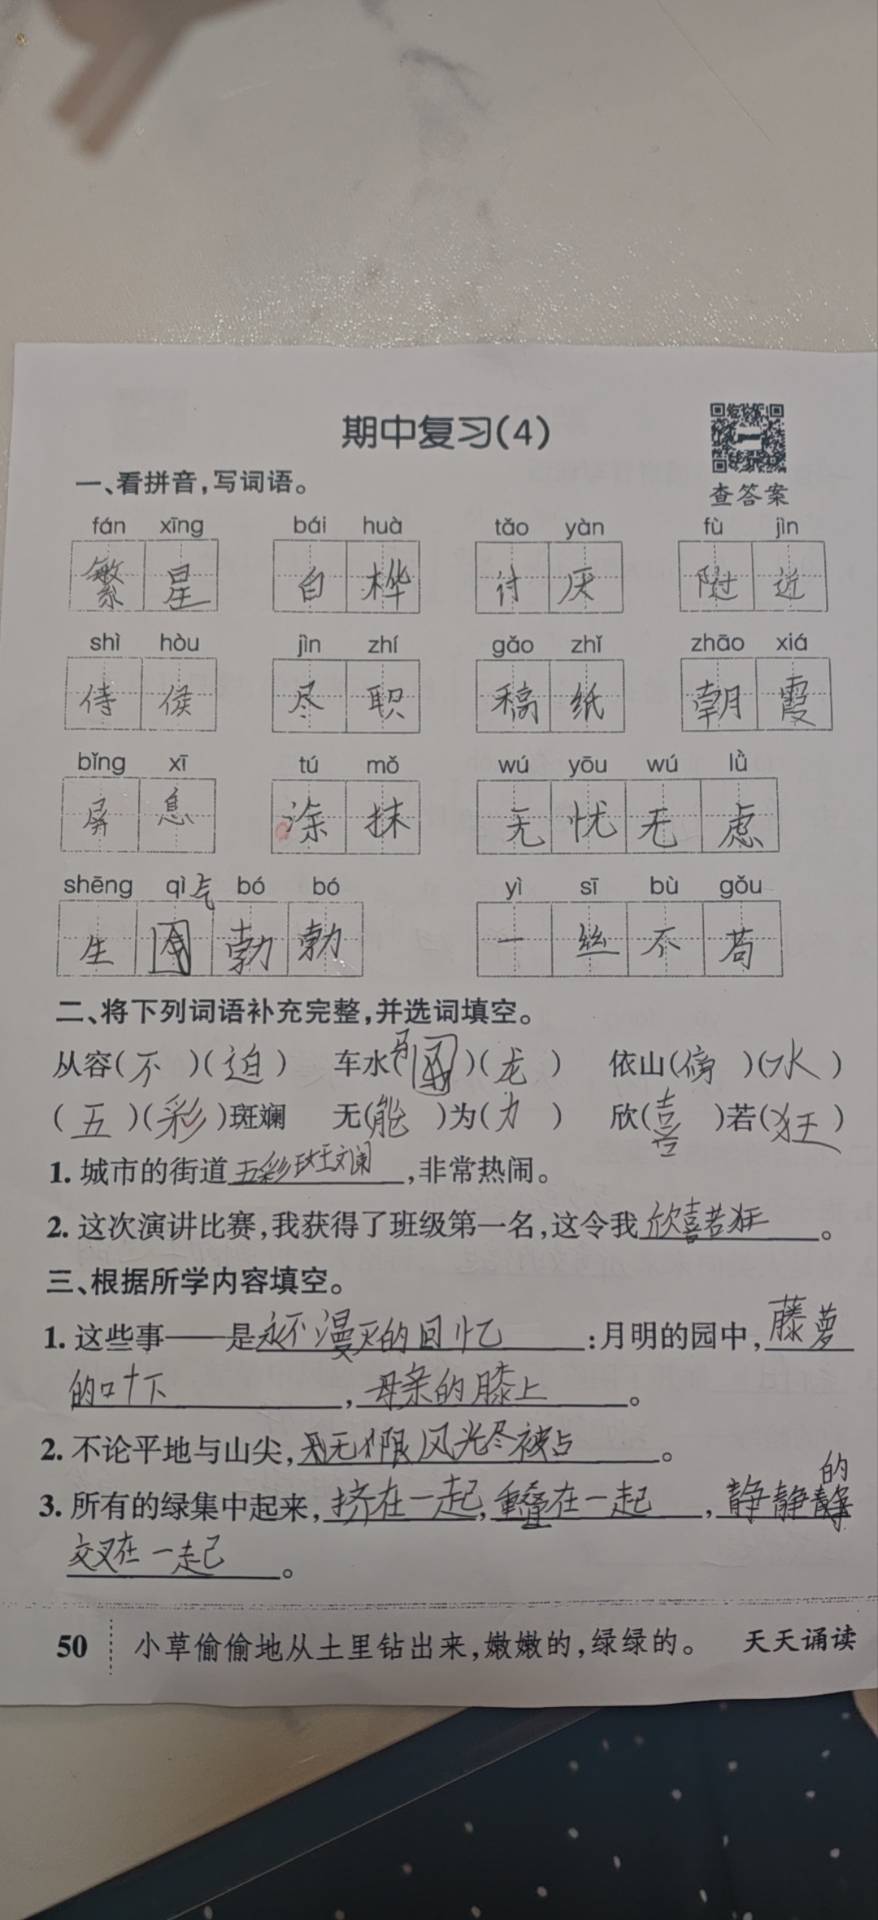 期中复习(4)
查答案
一、看拼音,写词语。
fán xīng bái huà tǎo yàn fù jìn
繁星 白桦 讨厌 附近
shì hòu jìn zhí gǎo zhǐ zhāo xiá
侍候 尽职 稿纸 朝霞
bǐng xī tú mǒ wú yōu wú lǜ
屏息 涂抹 无忧无虑
shēng qì bó bó yì sī bù gǒu
气
生 勃勃 一丝不苟
二、将下列词语补充完整,并选词填空。
从容(不)(迫) 车水(马)(龙) 依山(傍)(水)
(五)(彩)斑斓 无(能)为(力) 欣(喜)若(狂)
1. 城市的街道五彩斑斓,非常热闹。
2. 这次演讲比赛,我获得了班级第一名,这令我欣喜若狂。
三、根据所学内容填空。
1. 这些事——是永不漫灭的回忆:月明的园中,藤萝
的叶下,母亲的膝上。
2. 不论平地与山尖,无限风光尽被占。
3. 所有的绿集中起来,挤在一起,重叠在一起,静静的
交叉在一起。
50 小草偷偷地从土里钻出来,嫩嫩的,绿绿的。 天天诵读